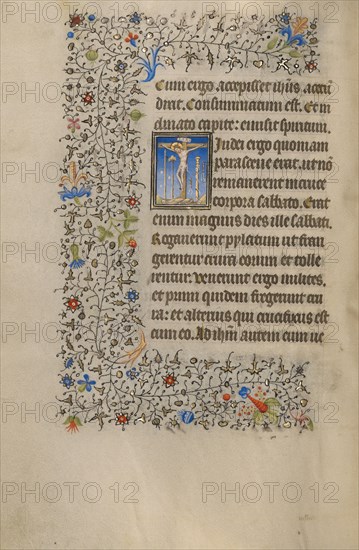 Cum ergo accepisset ihūs acetū
dixit. Consummatum est. Et in
clinato capite: emisit spiritum.
Iudei ergo quoniam
parasceue erat. ut nō
remanerent in cruce
corpora sabbato. Erat
enim magnus dies ille sabbati.
Rogauerunt pylatum ut fran
gerentur crura eorum et tolle
rentur: venerunt ergo milites.
et primi quidem fregerunt cru
ra: et alterius qui crucifixus est
cum eo. Ad ihm̄ autem cum ue
PHOTO 12